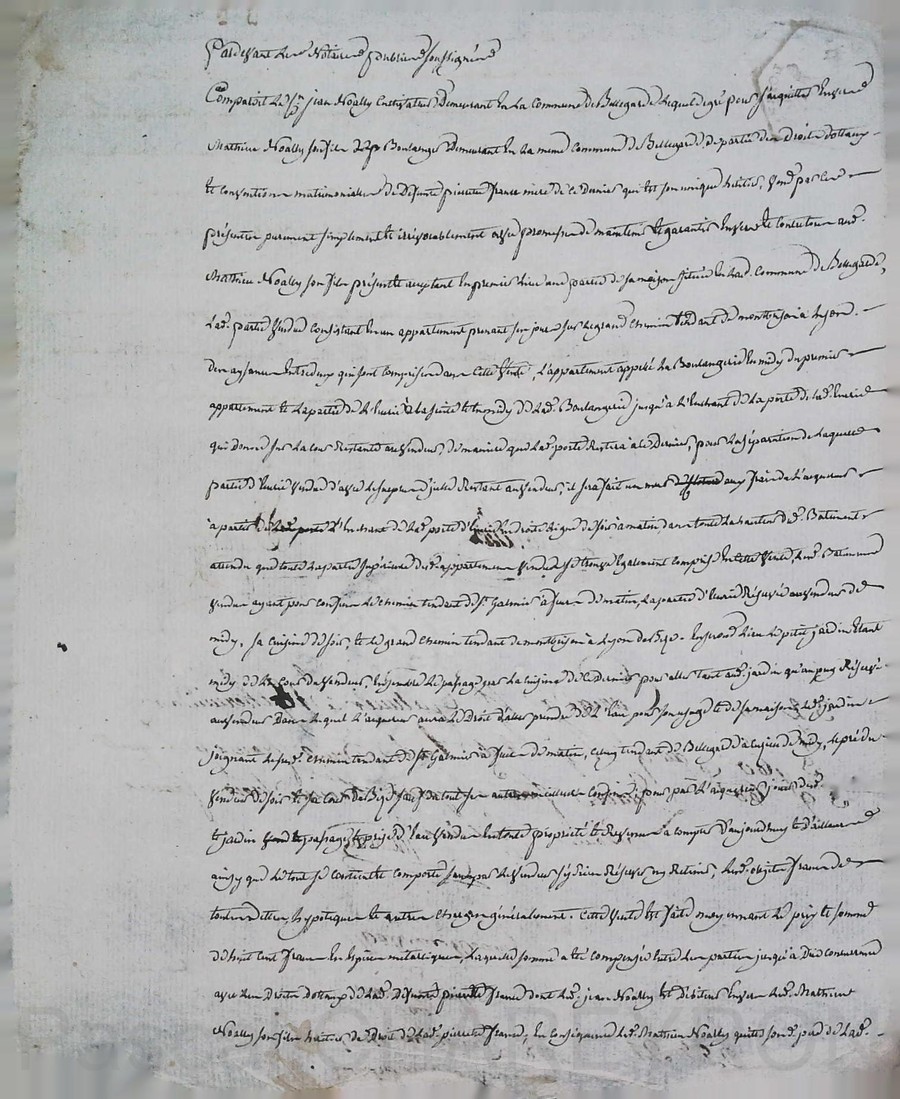 Pardevant les Notaires publics soussignés
Comparoit le Sr jean Noally Cultivateur Demeurant En La Commune de Bellegarde lequel de gré pour s'acquitter Envers
Mathieu Noally son fils Boulanger Demeurant En la meme Commune de Bellegarde de partie des Droits dottaux
et conventions matrimoniales de Defunte pierrette france mere de ce Dernier qui est son unique héritier, vend par ces
présentes purement simplement et irrévocablement avec promesse de maintenir et garantir Envers et Contre tous aud.
Mathieu Noally son fils présent et acceptant En premier lieu une partie de sa maison située En lad. Commune de Bellegarde,
lad. partie vendue Consistant En un appartement prenant son jour sur le grand chemin tendant de montbrison à Lyon.
des aysances Entredeux qui sont comprises dans cette vente, l'appartement appelé La Boulangerie En midy du premier
appartement et la partie de l'écurie à la suite et En midy de lad. Boulangerie jusqu'à l'Entrant de la porte de lad. écurie
qui donne sur la cour Restante au vendeur, de maniere que lad. porte Restera à ce Dernier, pour la séparation de laquelle
partie d'écurie vendue d'avec le surplus d'icelle Restant au vendeur, il sera fait un mur aux frais de l'acquereur
à partir de l'Entrant de lad. porte d'écurie En droite ligne de soir à matin dans toute la hauteur dud. Batiment
attendu que toute la partie supérieure dud. appartement vendu se trouve Egalement comprise En cette vente, led. Batiment
vendu ayant pour confins le chemin tendant de St. Galmier à feurs de matin, la portion d'écurie Réservée au vendeur de
midy, sa cuisine de soir, et le grand chemin tendant de montbrison à Lyon de bize. En second lieu le petit jardin Etant
midy de la Cour du vendeur, Ensemble le passage par la cuisine de ce Dernier pour aller tant aud. jardin qu'au puy Réservé
au vendeur Dans lequel l'acquereur aura le Droit d'aller prendre de l'eau pour son usage et de sa maison, led. jardin
joignant le susd. chemin tendant de St. Galmier à feurs de matin, celuy tendant de Bellegarde à de midy, le pré du
vendeur de soir et sa cour de Bize sauf du tout ses autres meilleurs confins, pour par l'acquereur jouir dud.
et jardin passage et prise d'eau vendus En toute propriété et Reserves à compter d'aujourd'huy et d'ailleurs
ainsy que le tout se contient et comporte par le vendeur s'y Rien Réserver ny Retenir, led. objet franc de
toutes dettes hypoteques et autres charges généralement. Cette vente est faite moyennant le prix et somme
de huit cent francs En Especes métalliques, laquelle somme a été compensée Entre les parties jusqu'à Due concurrence
avec les Droits dottaux de lad. Defunte pierrette france dont led. jean Noally Est débiteur Envers led. Mathieu
Noally son fils héritier de Droit de lad. pierrette france, En conséquence led. Mathieu Noally quitte son d. pere de lad.